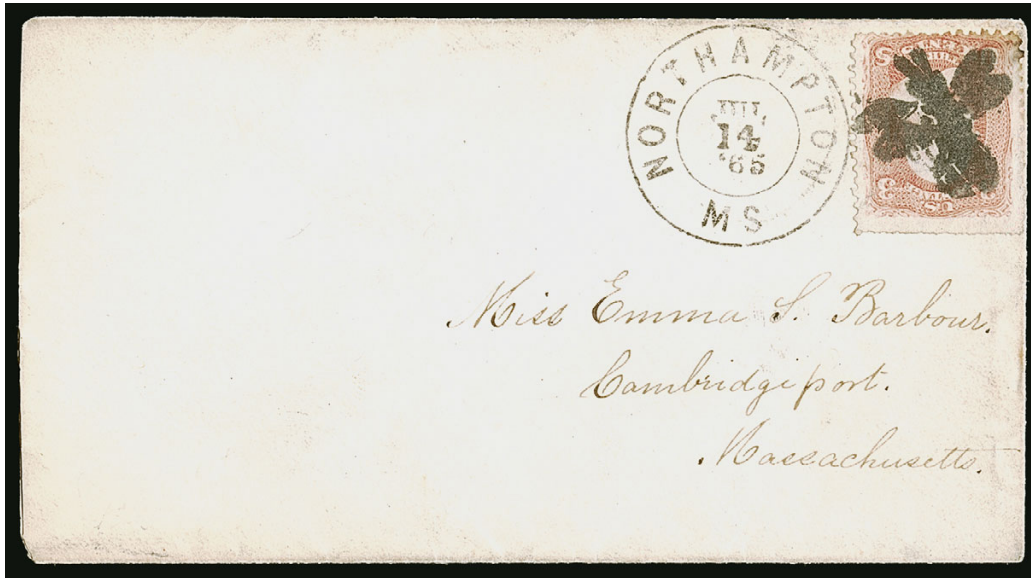 NORTHAMPTON
JUL
14
'65
MS
Miss Emma S. Barbour.
Cambridgeport.
Massachusetts.